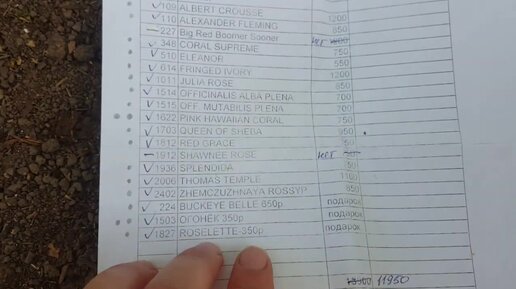 ✓ 109 ALBERT CROUSSE
✓ 110 ALEXANDER FLEMING 1200
— 227 Big Red Boomer Sooner 850
✓ 348 CORAL SUPREME нет
✓ 510 ELEANOR 750
✓ 614 FRINGED IVORY 550
✓ 1011 JULIA ROSE 1200
✓ 1514 OFFICINALIS ALBA PLENA 850
✓ 1515 OFF. MUTABILIS PLENA 700
✓ 1622 PINK HAWAIIAN CORAL 700
✓ 1703 QUEEN OF SHEBA 750
✓ 1812 RED GRACE 950
— 1912 SHAWNEE ROSE нет
✓ 1936 SPLENDIDA
✓ 2006 THOMAS TEMPLE
✓ 2402 ZHEMCZUZHNAYA ROSSYP 1100
✓ 224 BUCKEYE BELLE 650р 850
✓ 1503 ОГОНЁК 350р подарок
✓ 1827 ROSELETTE-350р подарок
подарок
11950